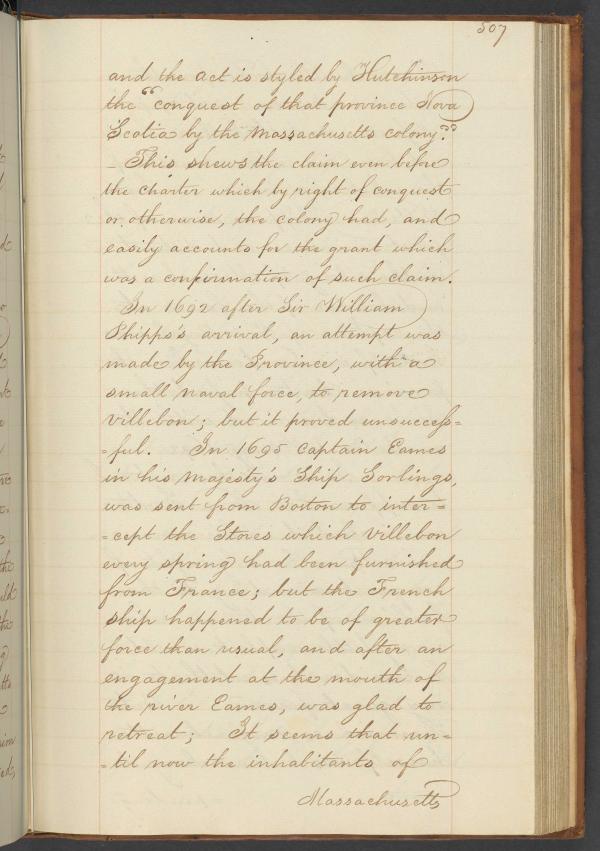 507
and the act is styled by Hutchinson
the "conquest of that province Nova
Scotia by the Massachusetts colony."
– This shews the claim even before
the charter which by right of conquest
or otherwise, the colony had, and
easily accounts for the grant which
was a confirmation of such claim.
In 1692 after Sir William
Phipps's arrival, an attempt was
made by the Province, with a
small naval force, to remove
Villebon; but it proved unsuccess=
=ful. In 1695 Captain Eames
in his Majesty's Ship Sorlings,
was sent from Boston to inter=
=cept the Stores which Villebon
every spring had been furnished
from France; but the French
ship happened to be of greater
force than usual, and after an
engagement at the mouth of
the river Eames, was glad to
retreat; It seems that un=
=til now the inhabitants of
Massachusetts